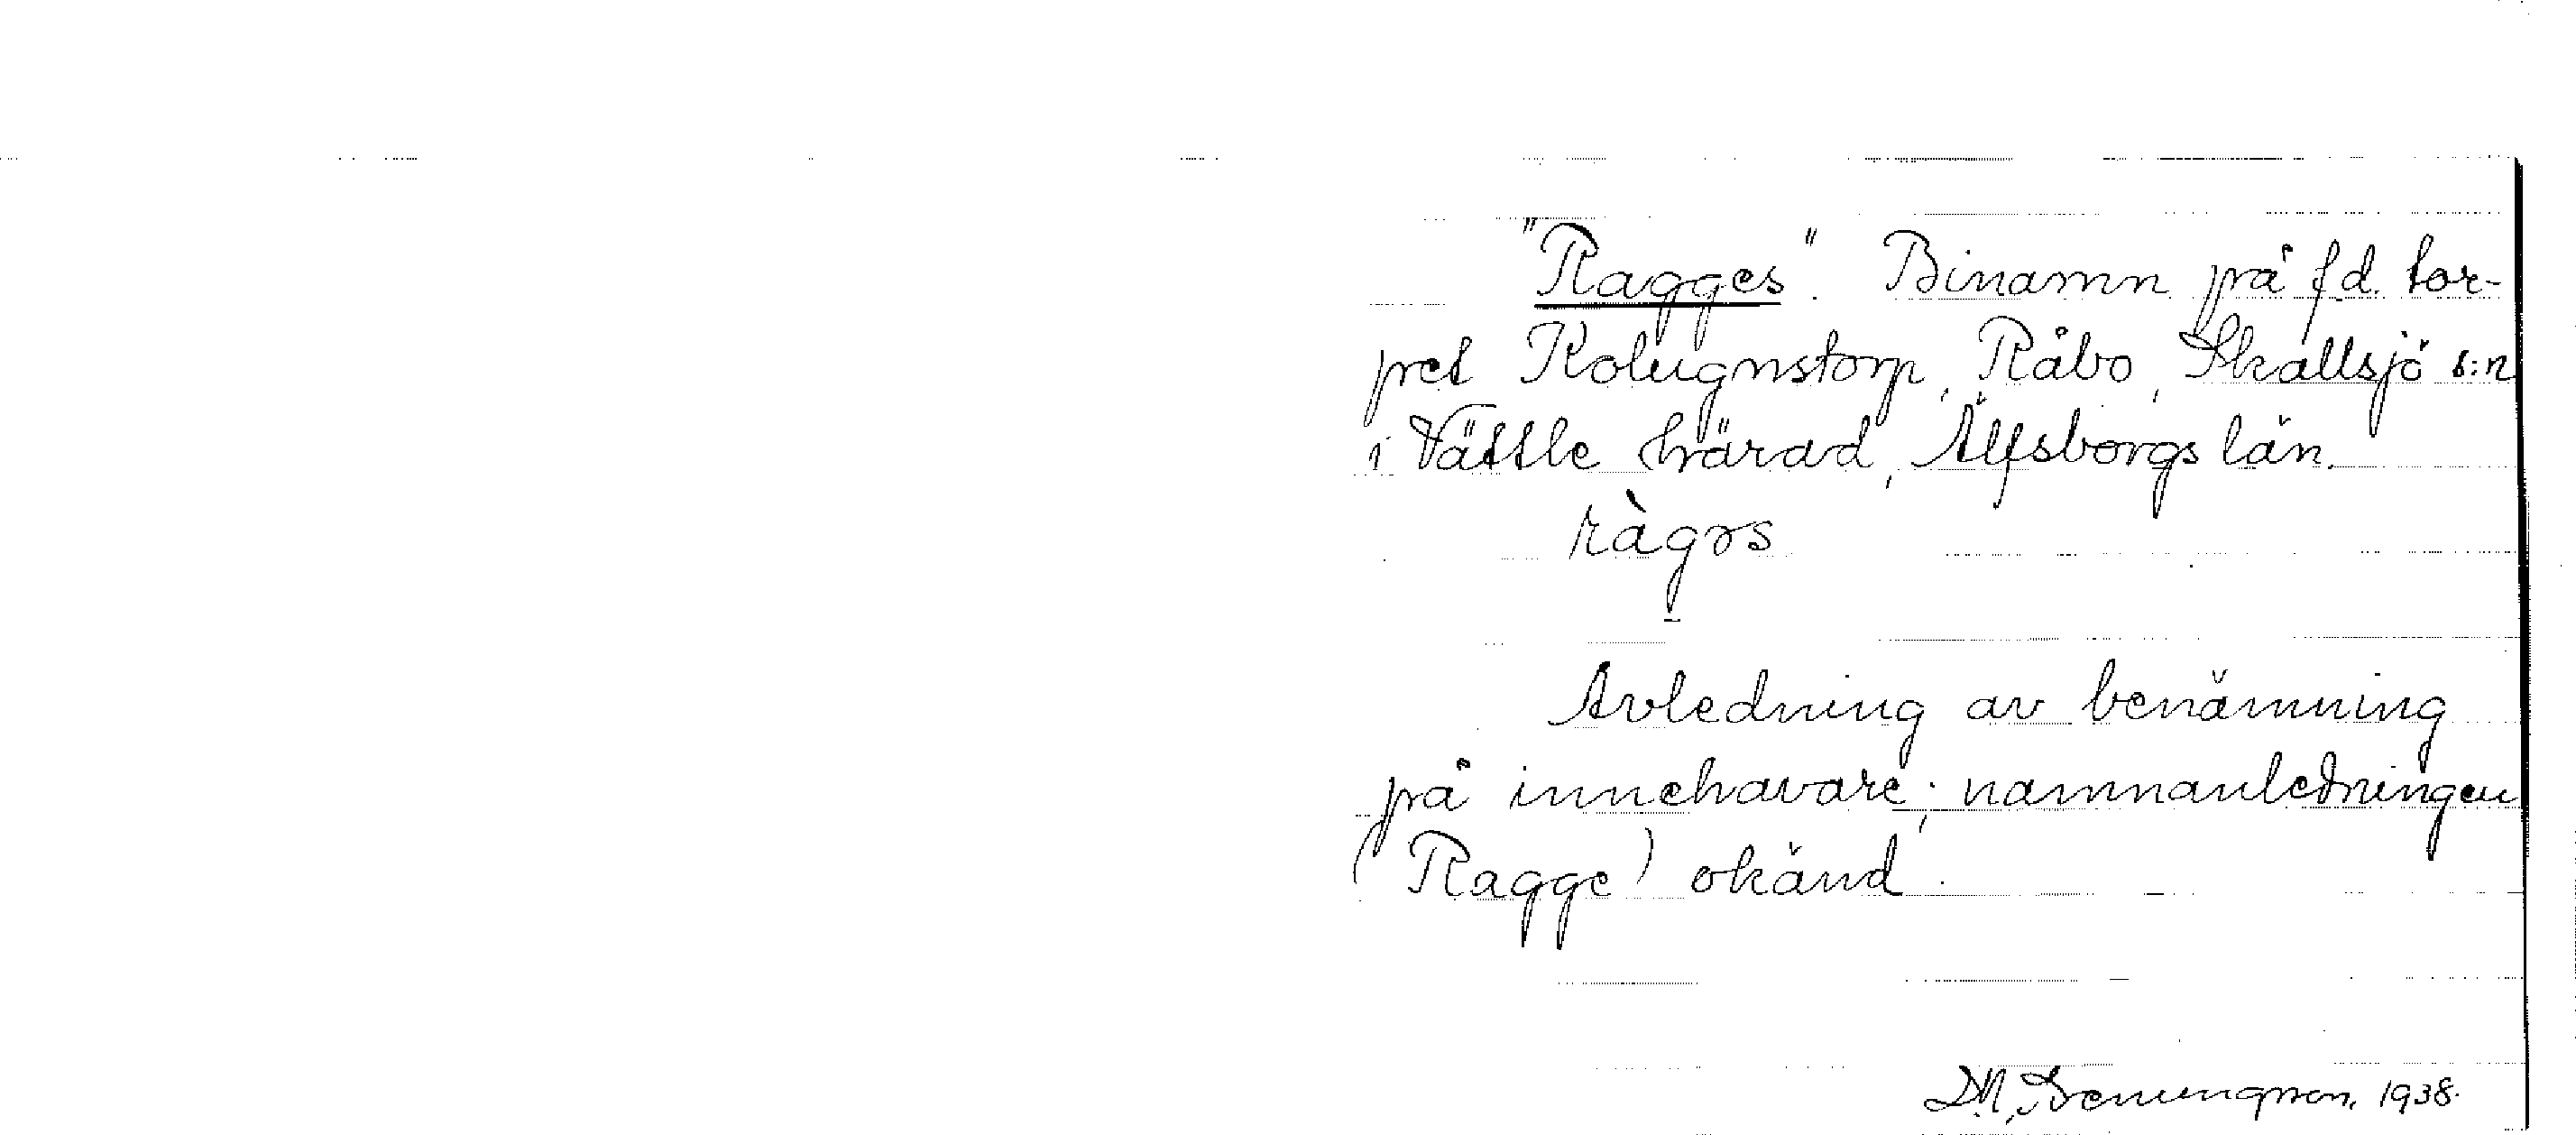 "Ragges". Binamn på f.d. tor-
pret Kolugnstorp, Råbo, Skallsjö s:n
i Vättle härad, Älfsborgs län.
ràgɤs
Avledning av benämning
på innehavare; namnanledningen
(Ragge) okänd.
1938.